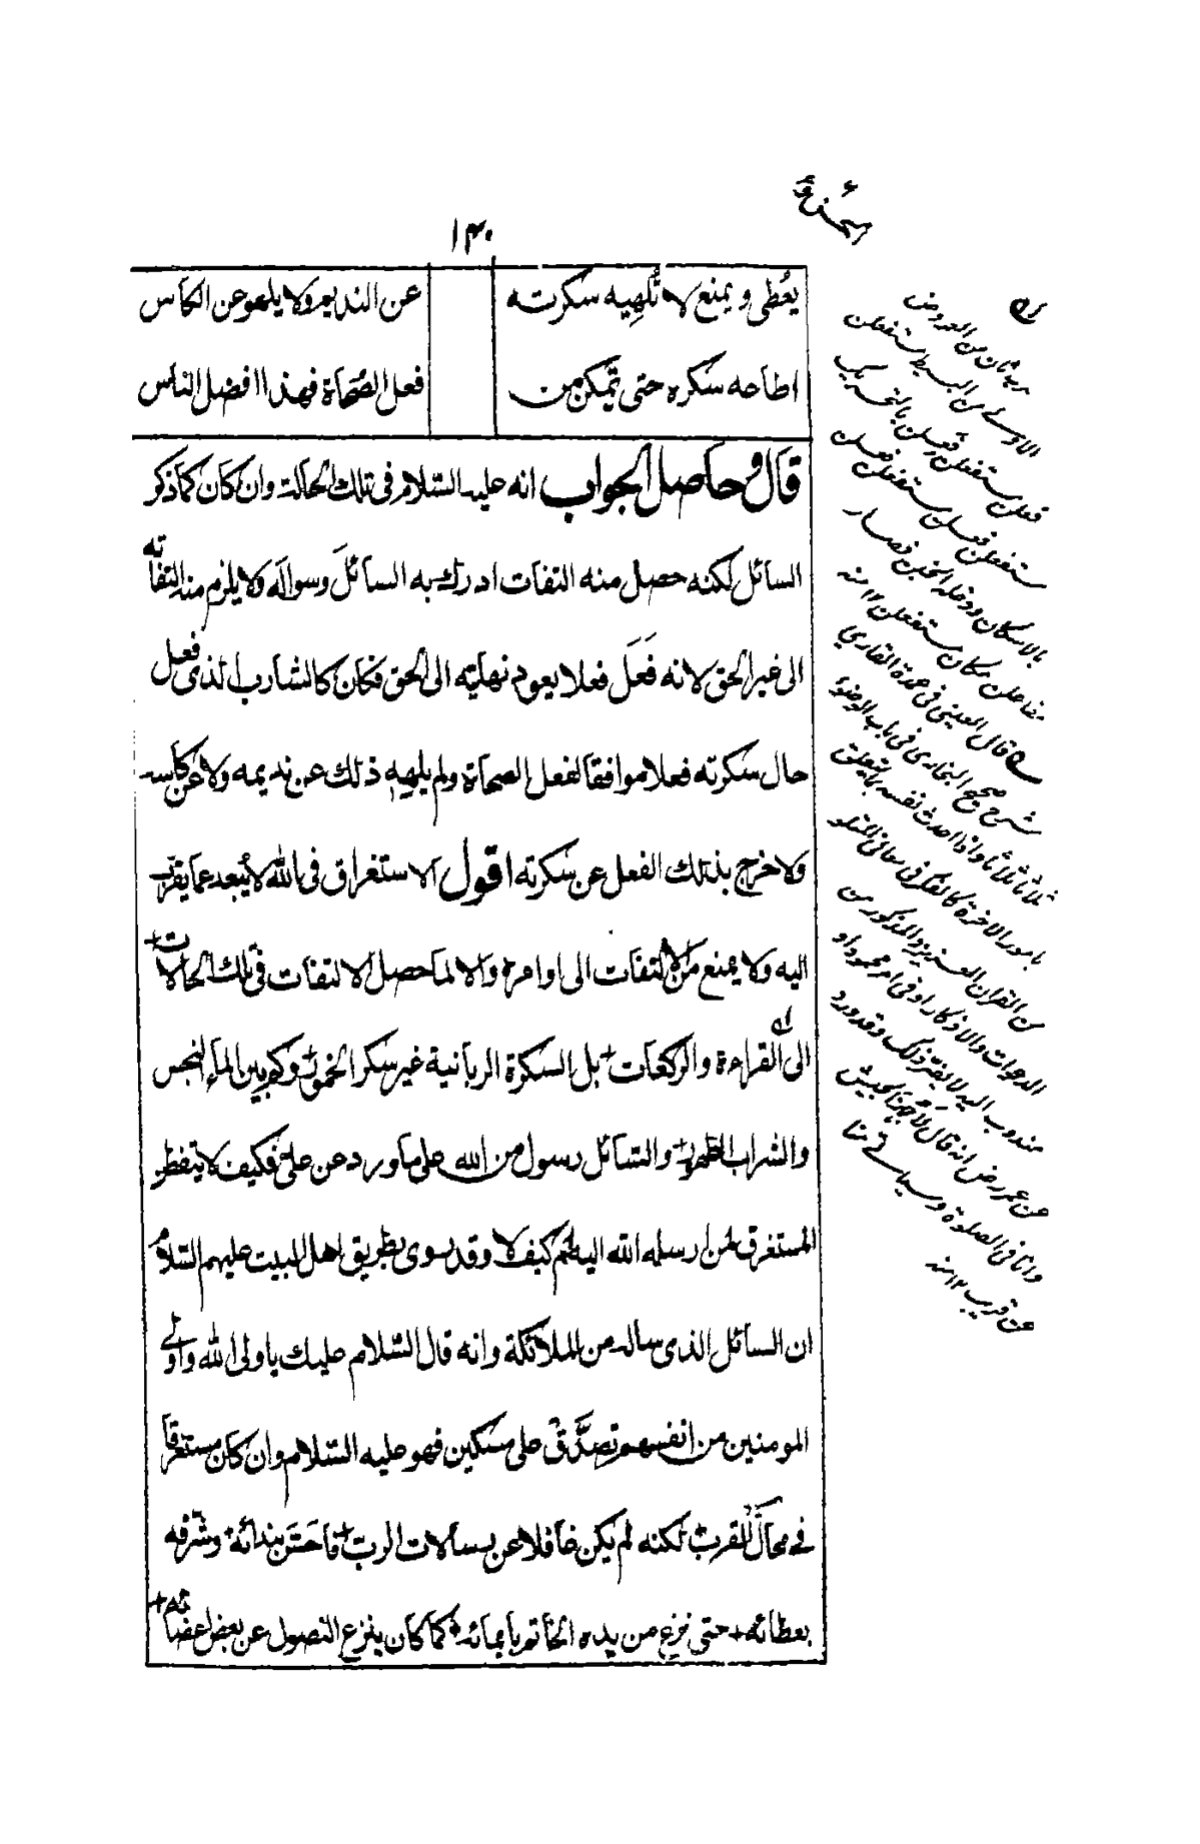 ١٣٠
يعُطى ويمنع لا تُلهِيه سكرته عن النديم ولا يلهو عن الكاس
اطاعه سكره حتى تمكن من فعل الصُحاة فهذا افضل الناس
قال وحاصل الجواب انه عليه السّلام فى تلك الحالة وان كان كما ذكر
السائل لكنه حصل منه التفات ادرك به السائلَ وسواله ولا يلزم منه التفاته
الى غير الحق لانه فَعَلَ فعلا يعود نهايته الى الحق فكان كالشارب الذى فعل
حال سكرته فعلا موافقا لفعل الصحاة ولم يلهِهِ ذلك عن نديمه ولا عن كاسه
ولا خرج بذلك الفعل عن سكرته اقول الاستغراق فى الله لا يُبعد عما يقرّب
اليه ولا يمنع من الالتفات الى اوامره والا لما حصل الالتفات فى تلك الحالات
الى القراءة والركعات بل السكرة الربانية غير سكر الخمور وكم بين الماء النجس
والشراب الطهور والسّائل رسول من الله على ما ورد عن على فكيف لا يتفطر
المستغرق لمن ارسله الله اليه كيف لا وقد روى بطريق اهل البيت عليهم السّلام
ان السائل الذى ساله من الملائكة وانه قال السّلام عليك يا ولى الله واولى
المومنين من انفسهم تصدَّق على مسكين فهو عليه السّلام وان كان مستغرقا
فى محالّ القرب لكنه لم يكن غافلا عن رسالات الرب فاحسَّ بندائه وشرفه
بعطائه حتى نزع من يده الخاتم بايمائه كما كان ينزع النصول عن بعض اعضائه
بيتان من العروض
الاولى من البسيط مستفعلن
فعلن مستفعلن فعلن بالتحريك
مستفعلن فعلن مستفعلن فعلن
بالاسكان ودخله الخبن فصار
مفاعلن مكان مستفعلن ١٢ منه
قال العينى فى عمدة القارى
شرح صحيح البخارى فى باب الوضوء
ثلاثا ثلاثا واذا احدث نفسه بما يتعلق
بامور الاخرة كالفكر فى معانى المتلو
من القران العزيز والمذكور من
الدعوات والاذكار او فى امر محمود او
مندوب اليه لا يضر ذلك وقد ورد
عن عمر رض انه قال لأجهز الجيش
وانا فى الصلوة وسياتى منا
عن قريب ١٢ منه